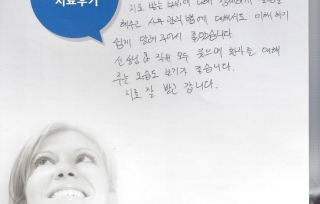 치료후기
치료 받는 부위에 대해
해주고 사후 관리법에 대해서도 이해하기
쉽게 말해 주어서 좋았습니다.
선생님 및 직원 모두 웃으며 환자를 대해
주는 모습도 보기가 좋습니다.
치료 잘 받고 갑니다.